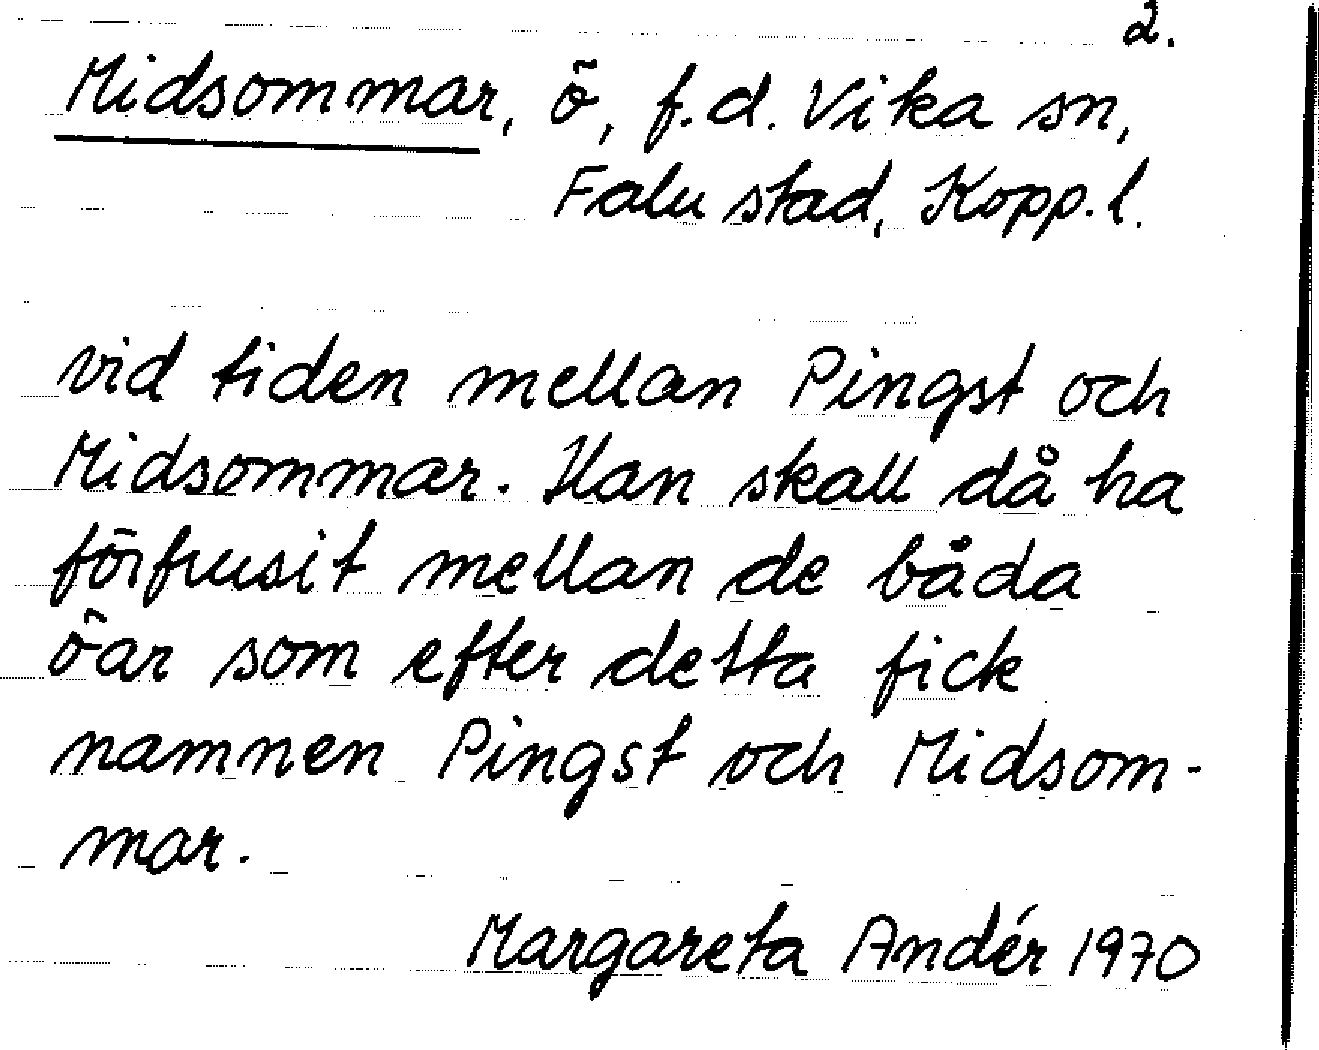 2.
Midsommar, ö, f.d. Vika sn,
Falu stad, Kopp. l.
vid tiden mellan Pingst och
Midsommar. Han skall då ha
förfrusit mellan de båda
öar som efter detta fick
namnen Pingst och Midsom-
mar.
Margareta Andér 1970